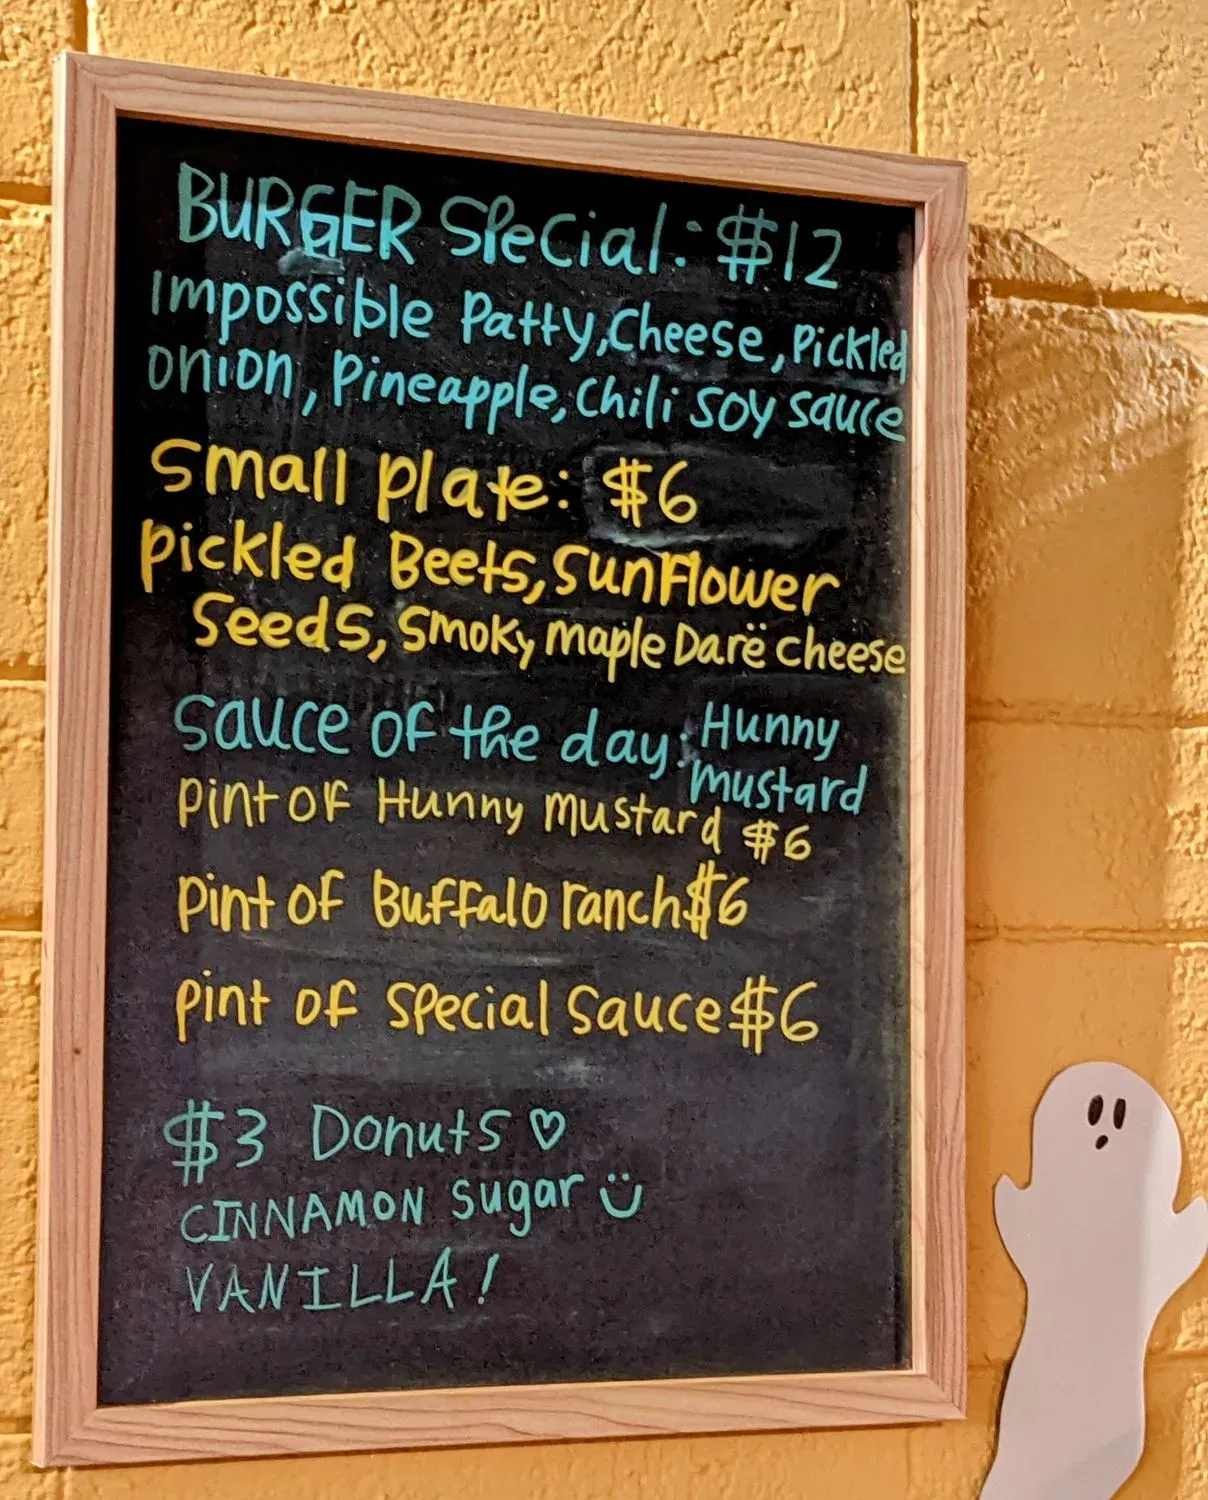 BURGER Special: $12
Impossible Patty, Cheese, Pickled
onion, Pineapple, Chili Soy Sauce
Small Plate: $6
Pickled Beets, Sunflower
Seeds, Smoky maple Darë cheese
Sauce of the day: Hunny
mustard
Pint of Hunny mustard $6
Pint of Buffalo ranch $6
Pint of Special Sauce $6
$3 Donuts ♡
CINNAMON Sugar Ü
VANILLA!